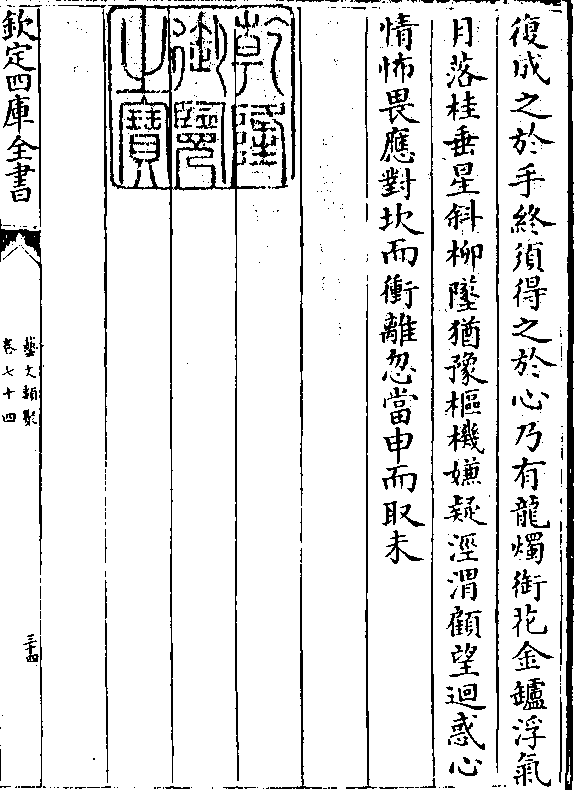 復成之於手終須得之於心乃有龍燭銜花金鑪浮氣
月落桂垂星斜柳墜猶豫樞機嫌疑涇渭顧望迴惑心
情怖畏應對坎而衝離忽當申而取未
乾隆
御覽
之寶
欽定四庫全書
藝文類聚
卷七十四
三十四